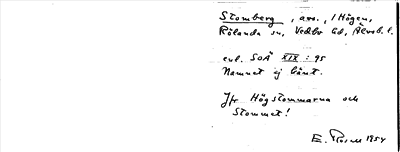 Stomberg, avs., i Högen,
Rölanda sn, Vedbo hd, Älvsb. l.
enl. SOÄ XIX : 95
Namnet ej känt.
Jfr Högstommarna och
Stommet!
E. Rosell 1954